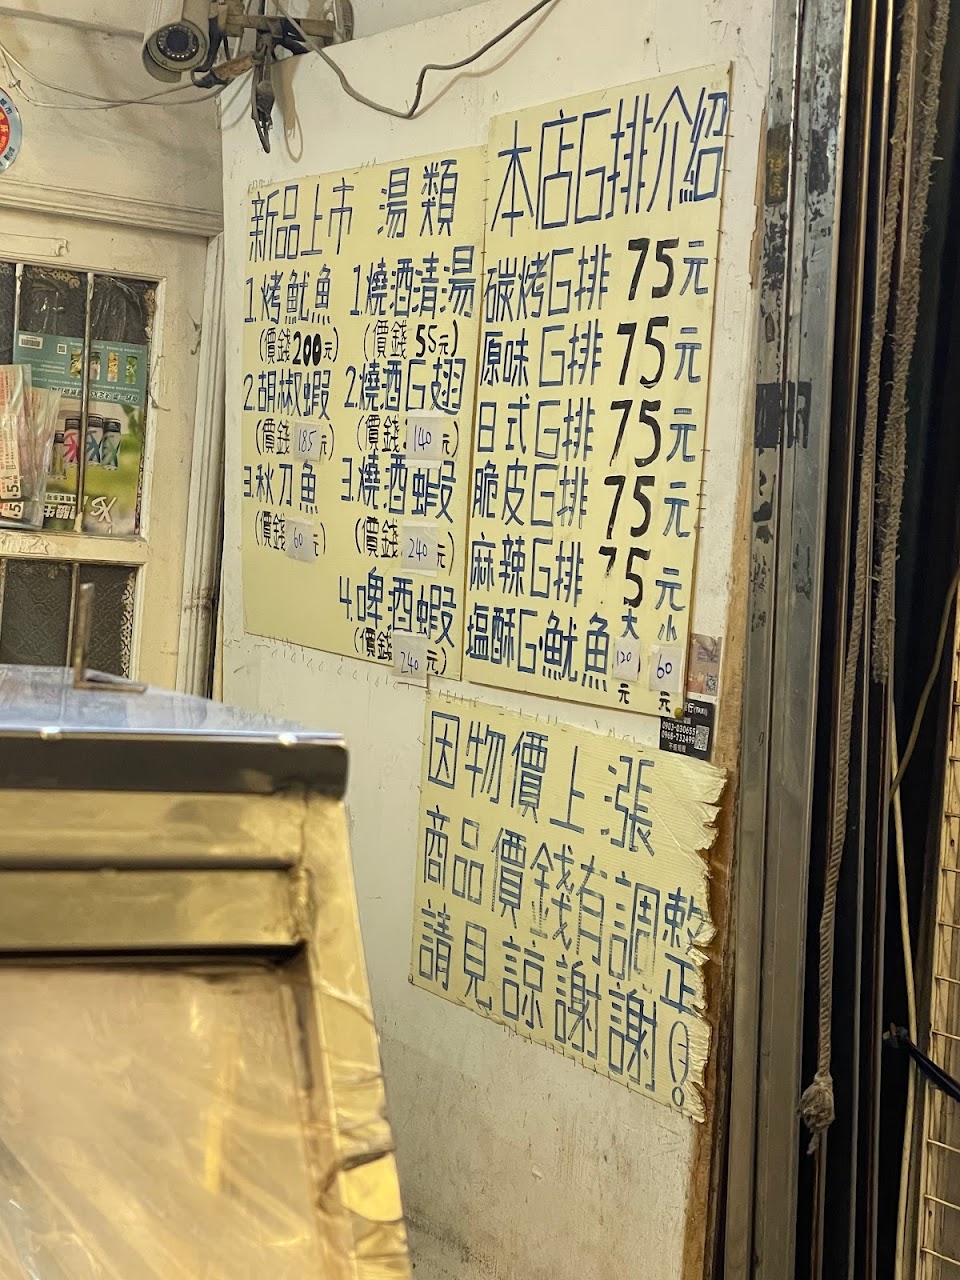 新品上市
1.烤魷魚
(價錢200元)
2.胡椒蝦
(價錢185元)
3.秋刀魚
(價錢60元)
湯類
1.燒酒清湯
(價錢55元)
2.燒酒G翅
(價錢140元)
3.燒酒蝦
(價錢240元)
4.啤酒蝦
(價錢240元)
本店G排介紹
碳烤G排 75元
原味G排 75元
日式G排 75元
脆皮G排 75元
麻辣G排 75元
塩酥G.魷魚 大120元 小60元
0903-030655
0968-732499
因物價上漲
商品價錢有調整
請見諒謝謝!